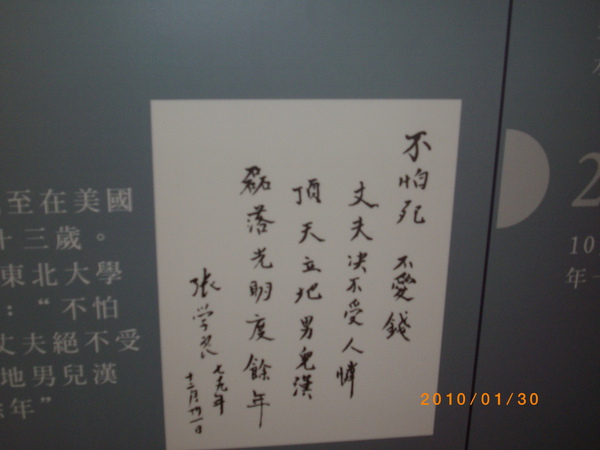 至在美國
十三歲。
東北大學
：“不怕
丈夫絕不受
地男兒漢
年”
不怕死 不愛錢
丈夫决不受人憐
頂天立地男兒漢
磊落光明度餘年
張學良 七九年
十二月卅一日
2
10
年
2010/01/30